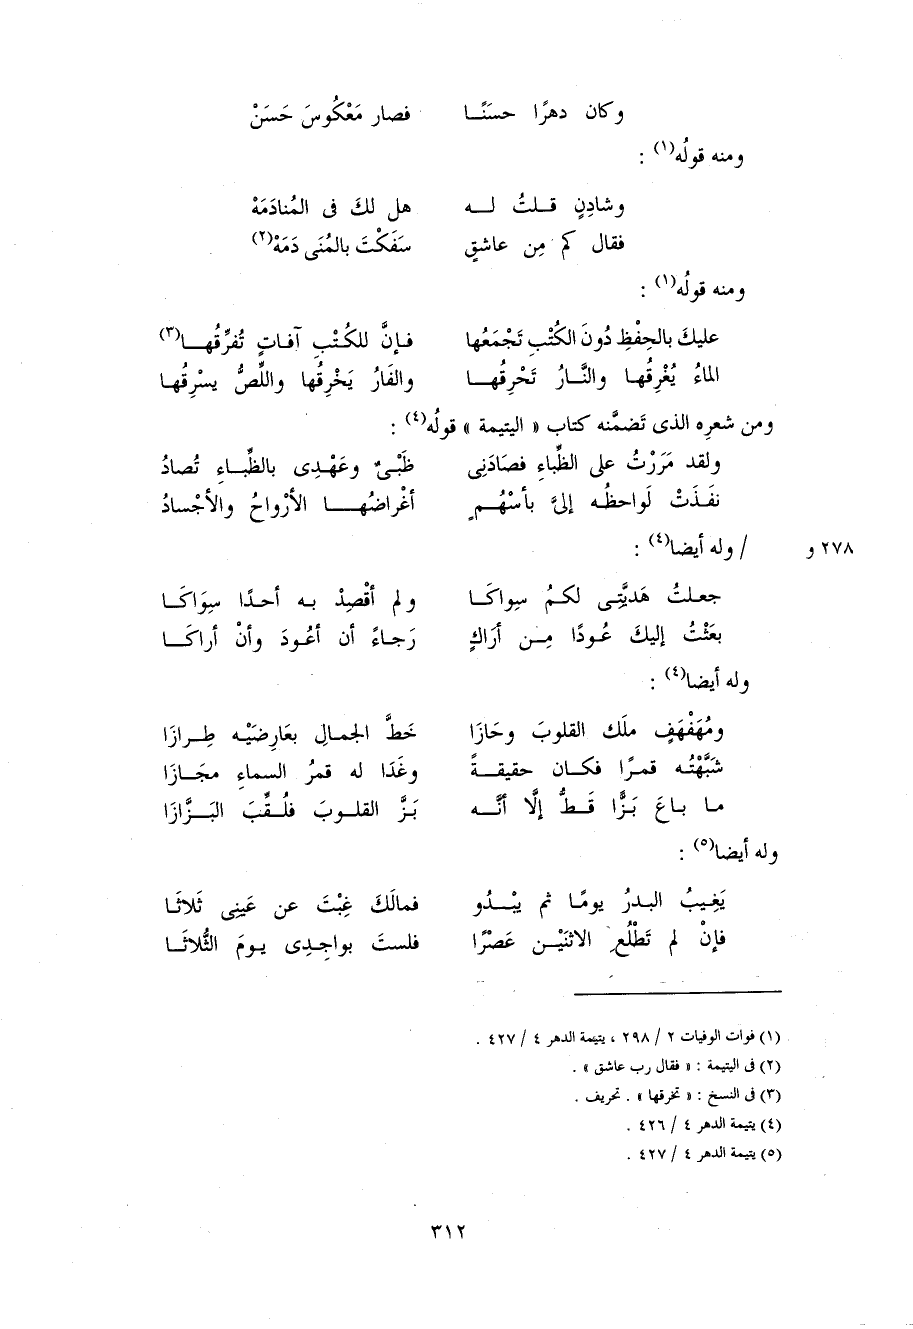 وكان دهرًا حسنًــا فصار مَعْكُوسَ حَسَنْ
ومنه قولُه(١) :
وشادِنٍ قــلتُ لــه هل لكَ فى المُنادَمَهْ
فقال كم مِن عاشقٍ سَفَكْتَ بالمُنَى دَمَهْ(٢)
ومنه قولُه(١) :
عليكَ بالحِفْظِ دُونَ الكُتْبِ تَجْمَعُها فــإنَّ للكُـتْبِ آفــاتٍ تُفرِّقُهــا(٣)
الماءُ يُغْرِقُها والنَّـارُ تَحْرِقُهــا والفَارُ يَخْرِقُها واللِّصُّ يسْرِقُها
ومن شعرِه الذى تَضمَّنه كتاب « اليتيمة » قولُه(٤) :
ولقد مَرَرْتُ على الظِّباءِ فصَادَنِى ظَبْىٌ وعَهْدِى بالظِّبـاءِ تُصادُ
نفَـذَتْ لَواحظُـه إلىَّ بأسْهُــمٍ أغْراضُهــا الأرْواحُ والأجْسادُ
٢٧٨ و / وله أيضا(٤) :
جعلتُ هَديَّتِى لكـمُ سِواكـا ولم أقْصِدْ بـه أحـدًا سِوَاكَـا
بعَثْتُ إليكَ عُـودًا مِـن أرَاكٍ رَجـاءً أن أعُـودَ وأنْ أراكَــا
وله أيضا(٤) :
ومُهَفْهَفٍ ملَك القلوبَ وحَازَا خَطَّ الجمـالِ بعَارِضَيْـه طِـرازَا
شَبَّهْتُـه قمـرًا فكـان حقيقـةً وغَدَا له قمرُ السماءِ مجَـازَا
مـا بـاعَ بَـزًّا قَـطُّ إلَّا أنَّــه بَزَّ القلـوبَ فلُـقِّبَ البَـزَّازَا
وله أيضا(٥) :
يَغِيبُ البـدرُ يومًـا ثم يبْـدُو فمالَكَ غِبْتَ عن عَينِى ثَلاثَـا
فإنْ لم تَطْلُعِ الاثنَيْـن عَصْرًا فلستَ بواجِدِى يـومَ الثُّلاثَـا
(١) فوات الوفيات ٢ / ٢٩٨ ، يتيمة الدهر ٤ / ٤٢٧ .
(٢) فى اليتيمة : « فقال رب عاشق » .
(٣) فى النسخ : « تخرقها » . تحريف .
(٤) يتيمة الدهر ٤ / ٤٢٦ .
(٥) يتيمة الدهر ٤ / ٤٢٧ .
٣١٢